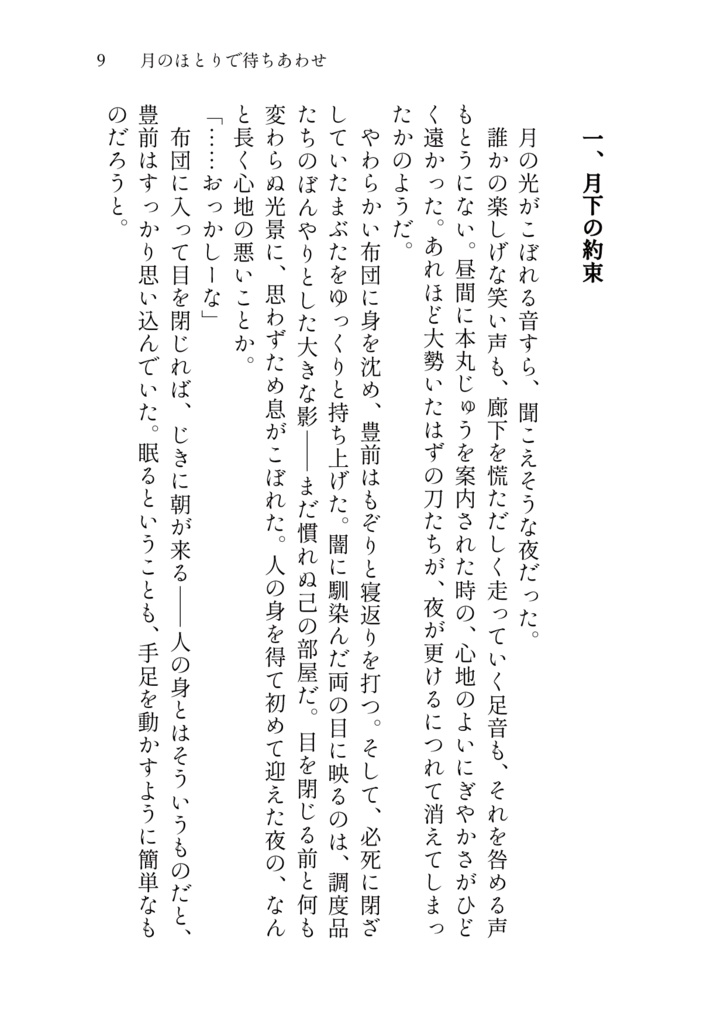 9　月のほとりで待ちあわせ
一、月下の約束
　月の光がこぼれる音すら、聞こえそうな夜だった。
　誰かの楽しげな笑い声も、廊下を慌ただしく走っていく足音も、それを咎める声
もとうにない。昼間に本丸じゅうを案内された時の、心地のよいにぎやかさがひど
く遠かった。あれほど大勢いたはずの刀たちが、夜が更けるにつれて消えてしまっ
たかのようだ。
　やわらかい布団に身を沈め、豊前はもぞりと寝返りを打つ。そして、必死に閉ざ
していたまぶたをゆっくりと持ち上げた。闇に馴染んだ両の目に映るのは、調度品
たちのぼんやりとした大きな影――まだ慣れぬ己の部屋だ。目を閉じる前と何も
変わらぬ光景に、思わずため息がこぼれた。人の身を得て初めて迎えた夜の、なん
と長く心地の悪いことか。
「……おっかしーな」
　布団に入って目を閉じれば、じきに朝が来る――人の身とはそういうものだと、
豊前はすっかり思い込んでいた。眠るということも、手足を動かすように簡単なも
のだろうと。